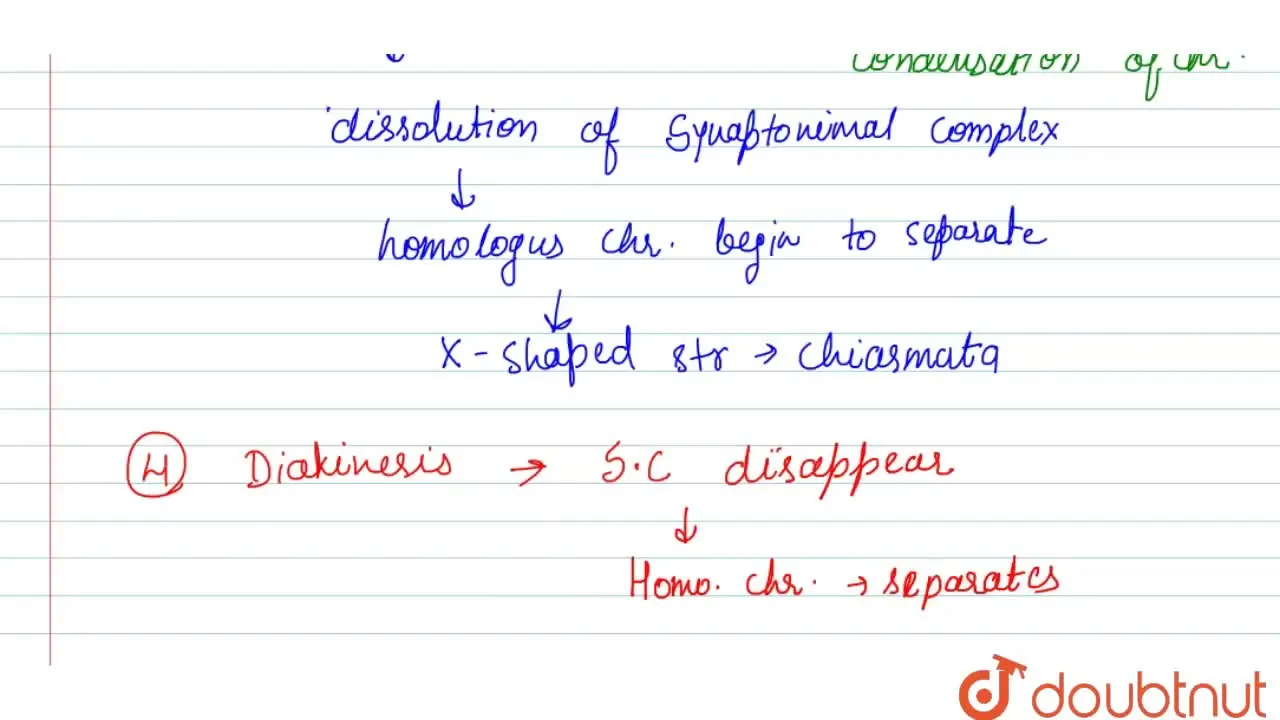 condensation of chr.
dissolution of Synaptonimal complex
↓
homologus chr. begin to separate
↓
X - shaped str → chiasmata
4 Diakinesis → S.C disappear
↓
Homo. chr. → separates
doubtnut